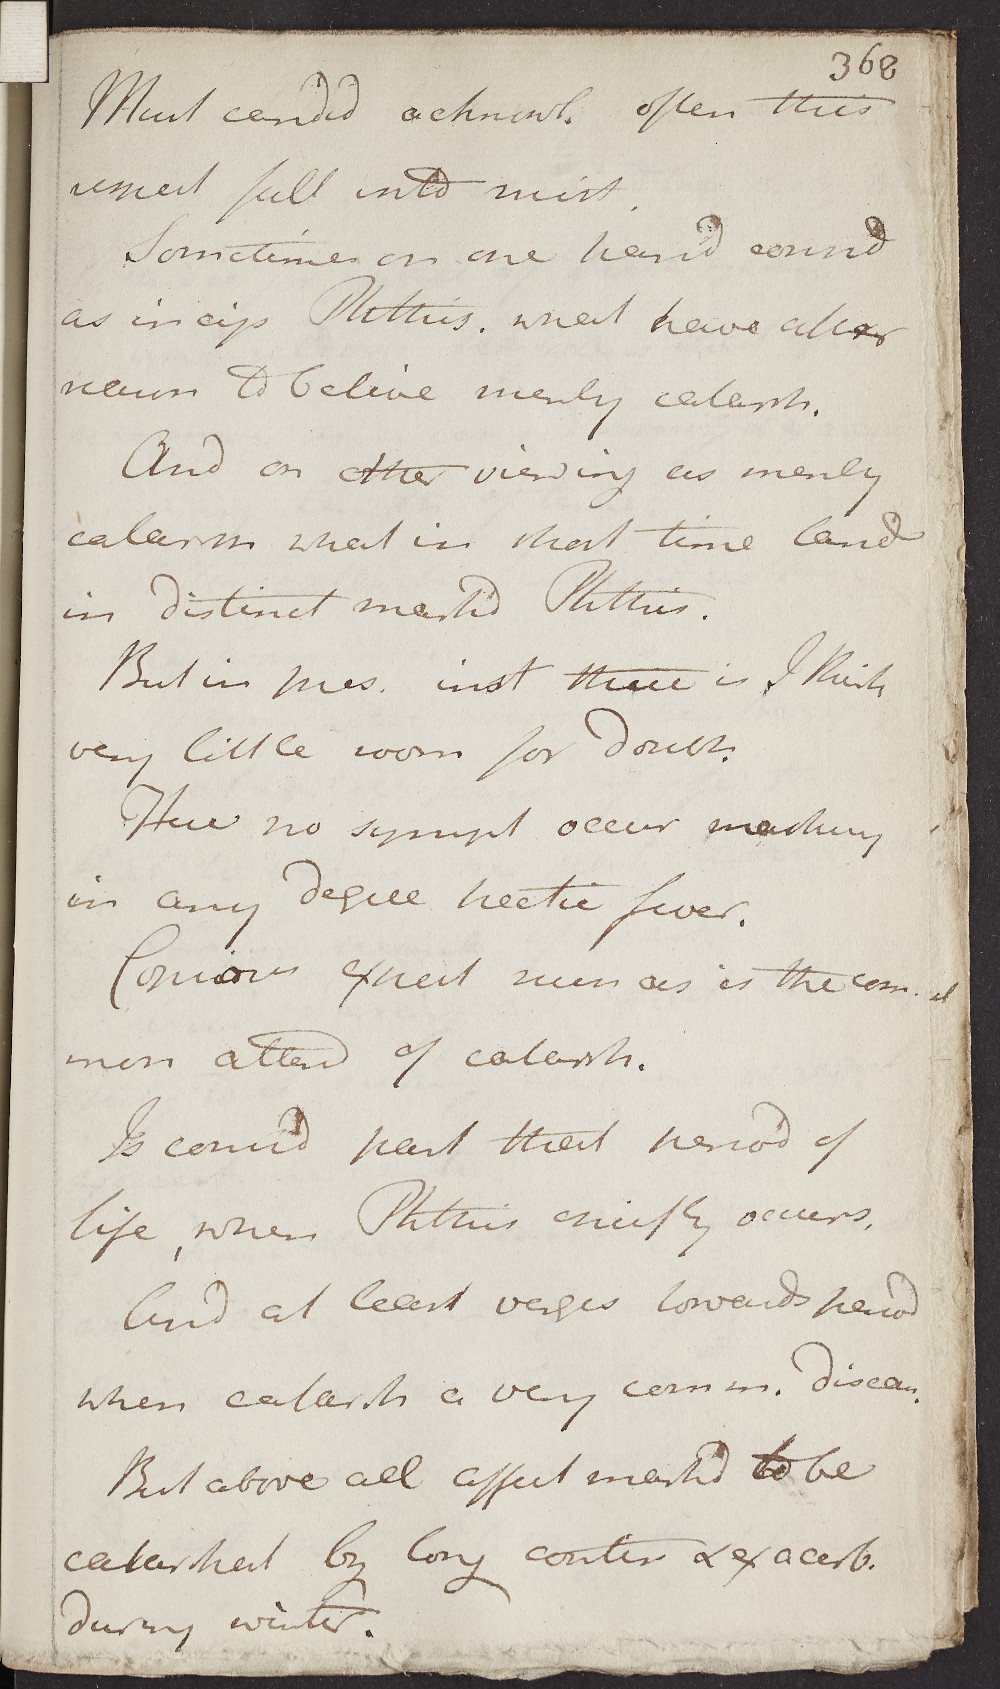 368
Must candid acknowl. often this
respect fall into mist.
Sometimes on one hand consid
as incip Phthisis. what have after
reason to believe merely catarrh.
And on other viewing as merely
catarrh what in short time land
in distinct mark'd Phthisis.
But in pres. inst there is I think
very little room for doubt.
Here no sympt occur marking
in any degree hectic fever.
Copious expect mucus is the com
mon attend of catarrh.
Is consid past that period of
life, when Phthisis chiefly occurs.
And at least verges towards period
when catarrh a very comm. diseas.
But above all affect mark'd to be
catarrhal by long contin & exacerb.
during winter.